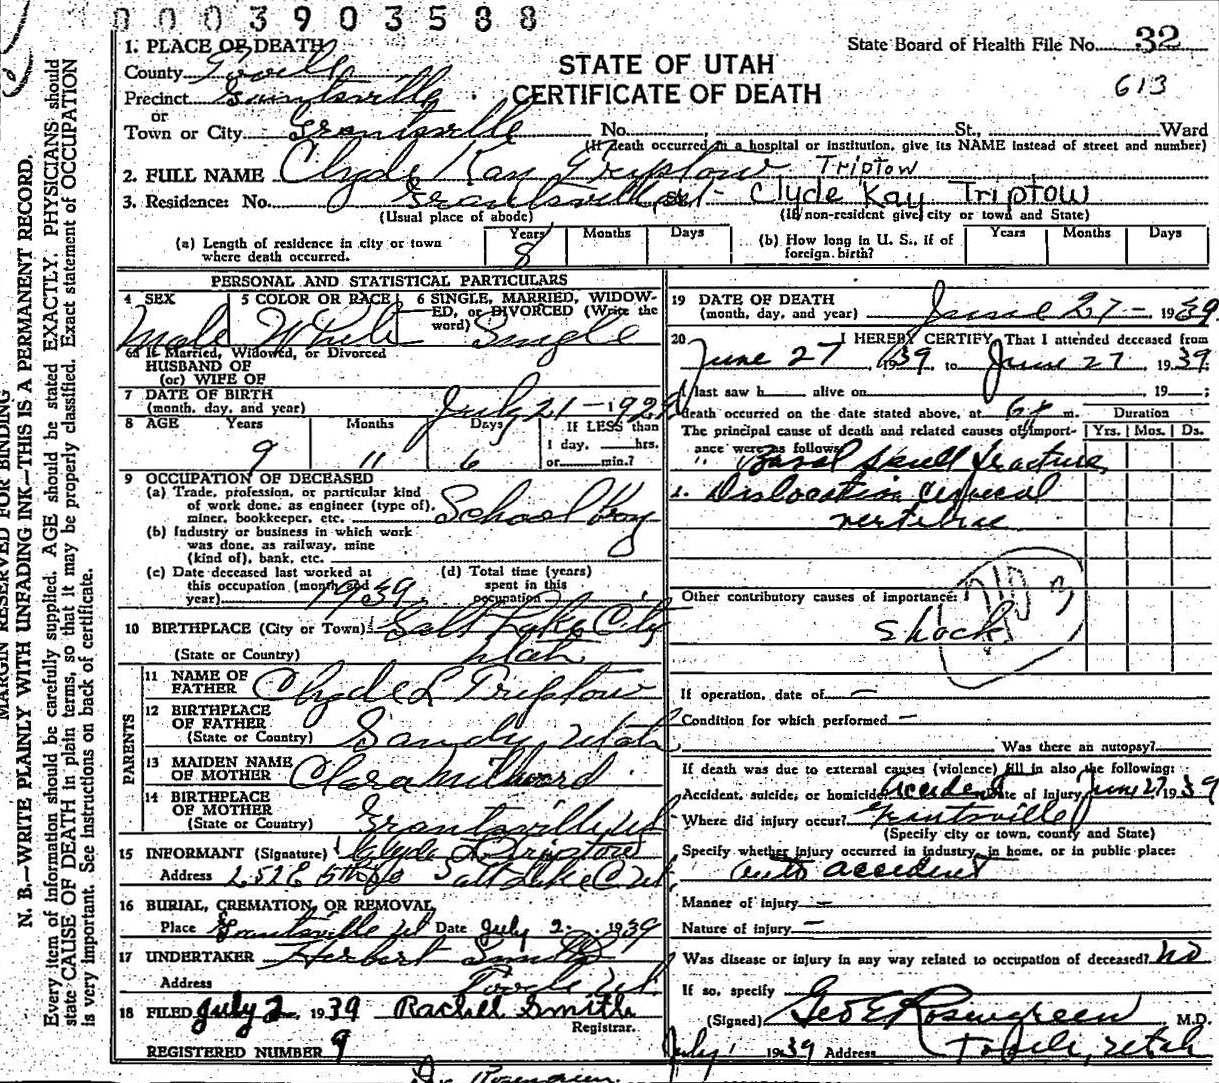 0003903588
State Board of Health File No. 32
613
STATE OF UTAH
CERTIFICATE OF DEATH
1. PLACE OF DEATH
County Tooele
Precinct Grantsville
or
Town or City Grantsville No. St., Ward
(If death occurred in a hospital or institution, give its NAME instead of street and number)
2. FULL NAME Clyde Kay Triptow Triptow
3. Residence: No. Grantsville St. Clyde Kay Triptow
(Usual place of abode) (If non-resident give city or town and State)
(a) Length of residence in city or town where death occurred. Years 8 Months Days
(b) How long in U. S., if of foreign birth? Years Months Days
PERSONAL AND STATISTICAL PARTICULARS
4 SEX Male
5 COLOR OR RACE White
6 SINGLE, MARRIED, WIDOWED, or DIVORCED (Write the word) Single
6a If Married, Widowed, or Divorced
HUSBAND OF
(or) WIFE OF
7 DATE OF BIRTH
(month, day, and year) July 21 - 1929
8 AGE Years 9 Months 11 Days 6 If LESS than
1 day, hrs.
or min.?
9 OCCUPATION OF DECEASED
(a) Trade, profession, or particular kind
of work done, as engineer (type of),
miner, bookkeeper, etc. School boy
(b) Industry or business in which work
was done, as railway, mine
(kind of), bank, etc.
(c) Date deceased last worked at
this occupation (month and
year) 1939
(d) Total time (years)
spent in this
occupation
10 BIRTHPLACE (City or Town) Salt Lake City
(State or Country) Utah
PARENTS
11 NAME OF
FATHER Clyde L Triptow
12 BIRTHPLACE
OF FATHER
(State or Country) Sandy, Utah
13 MAIDEN NAME
OF MOTHER Clara Millward
14 BIRTHPLACE
OF MOTHER
(State or Country) Grantsville, Ut
15 INFORMANT (Signature) Clyde L Triptow
Address 252 E 5th So Salt Lake C. Ut.
16 BURIAL, CREMATION, OR REMOVAL,
Place Grantsville Ut Date July 2, 1939
17 UNDERTAKER Herbert Smith
Address Tooele Ut.
18 FILED July 2, 1939 Rachel Smith
Registrar.
REGISTERED NUMBER 9
19 DATE OF DEATH
(month, day, and year) June 27 - 1939
20 I HEREBY CERTIFY, That I attended deceased from
June 27, 1939 to June 27 1939;
I last saw h alive on , 19 ;
death occurred on the date stated above, at m.
The principal cause of death and related causes of importance were as follows Duration Yrs. Mos. Ds.
Basal skull fracture
2. Dislocation cervical
vertebrae
Other contributory causes of importance:
Shock
If operation, date of —
Condition for which performed —
Was there an autopsy?
If death was due to external causes (violence) fill in also the following:
Accident, suicide, or homicide accident Date of injury June 27, 1939
Where did injury occur? Grantsville
(Specify city or town, county and State)
Specify whether injury occurred in industry, in home, or in public place:
auto accident
Manner of injury —
Nature of injury —
Was disease or injury in any way related to occupation of deceased? no
If so, specify
(Signed) Geo E Rosengreen M.D.
July 1 1939 Address Tooele, Utah
Dr. Rosengreen.
MARGIN RESERVED FOR BINDING
N. B.—WRITE PLAINLY WITH UNFADING INK—THIS IS A PERMANENT RECORD.
Every item of information should be carefully supplied. AGE should be stated EXACTLY. PHYSICIANS should
state CAUSE OF DEATH in plain terms, so that it may be properly classified. Exact statement of OCCUPATION
is very important. See instructions on back of certificate.